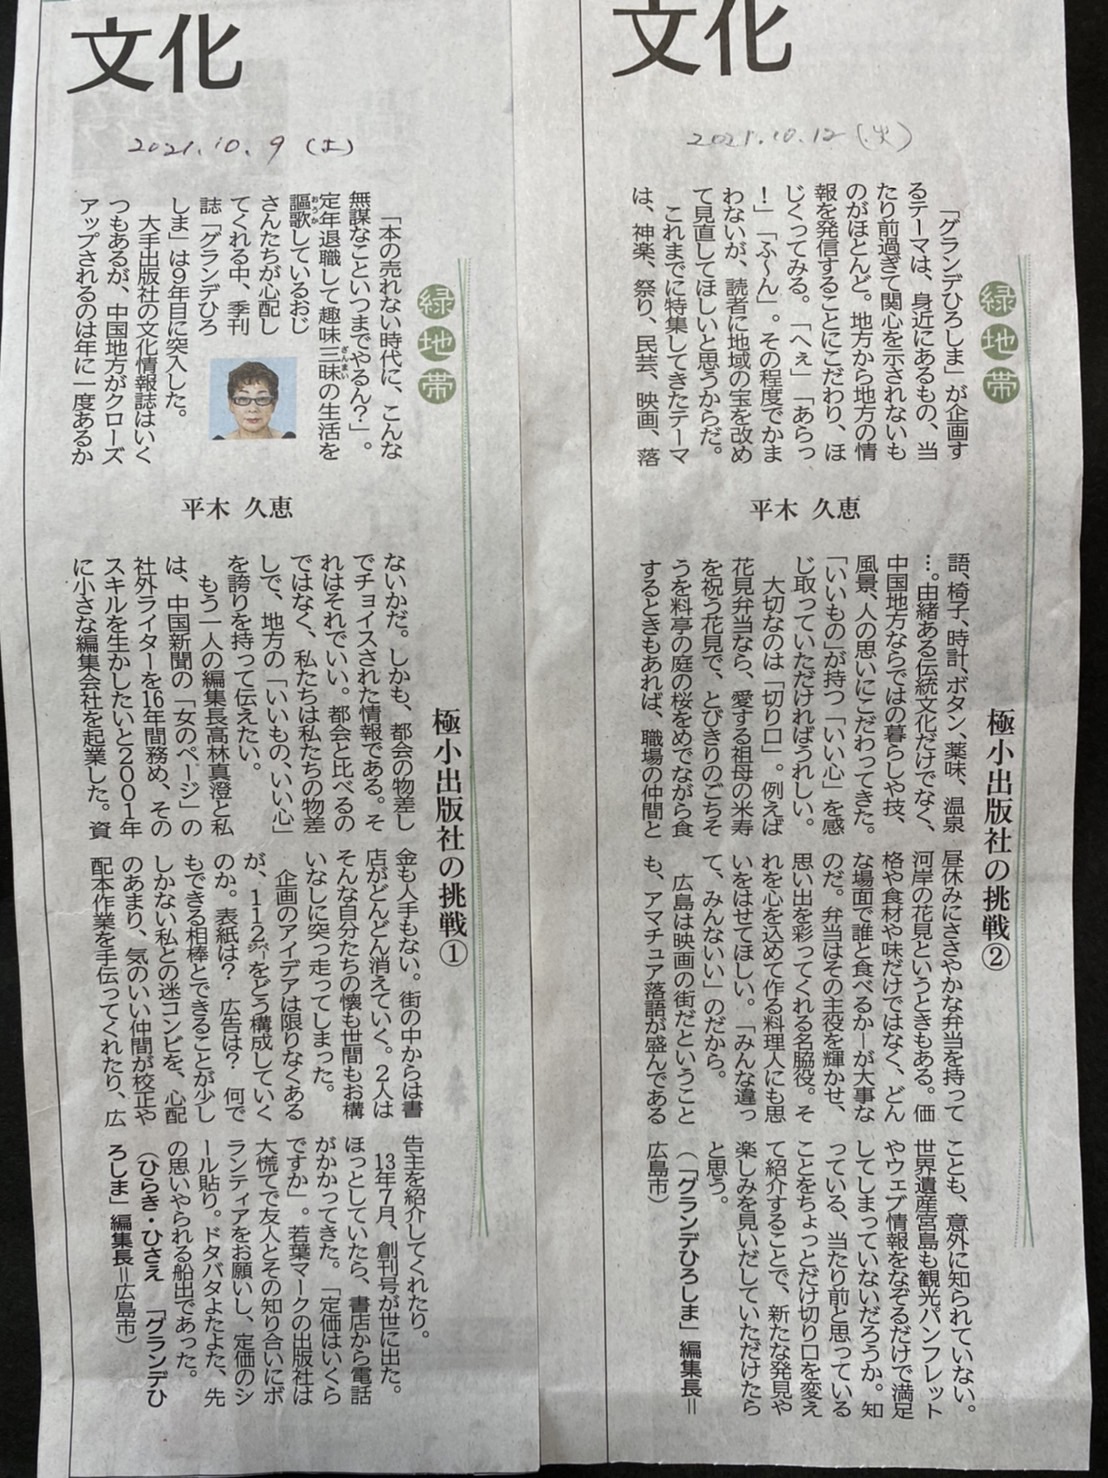 文化
2021.10.9(土)
緑地帯
平木 久恵
極小出版社の挑戦①
「本の売れない時代に、こんな
無謀なこといつまでやるん?」。
定年退職して趣味三昧の生活を
ざんまい
謳歌しているおじ
おうか
さんたちが心配し
てくれる中、季刊
誌「グランデひろ
しま」は9年目に突入した。
大手出版社の文化情報誌はいく
つもあるが、中国地方がクローズ
アップされるのは年に一度あるか
ないかだ。しかも、都会の物差し
でチョイスされた情報である。そ
れはそれでいい。都会と比べるの
ではなく、私たちは私たちの物差
しで、地方の「いいもの、いい心」
を誇りを持って伝えたい。
もう一人の編集長高林真澄と私
は、中国新聞の「女のページ」の
社外ライターを16年間務め、その
スキルを生かしたいと2001年
に小さな編集会社を起業した。資
金も人手もない。街の中からは書
店がどんどん消えていく。2人は
そんな自分たちの懐も世間もお構
いなしに突っ走ってしまった。
企画のアイデアは限りなくある
が、112㌻をどう構成していく
のか。表紙は? 広告は? 何で
もできる相棒とできることが少し
しかない私との迷コンビを、心配
のあまり、気のいい仲間が校正や
配本作業を手伝ってくれたり、広
告主を紹介してくれたり。
13年7月、創刊号が世に出た。
ほっとしていたら、書店から電話
がかかってきた。「定価はいくら
ですか」。若葉マークの出版社は
大慌てで友人とその知り合いにボ
ランティアをお願いし、定価のシ
ール貼り。ドタバタよたよた、先
の思いやられる船出であった。
(ひらき・ひさえ 「グランデひ
ろしま」編集長=広島市)
文化
2021.10.12(火)
緑地帯
平木 久恵
極小出版社の挑戦②
「グランデひろしま」が企画す
るテーマは、身近にあるもの、当
たり前過ぎて関心を示されないも
のがほとんど。地方から地方の情
報を発信することにこだわり、ほ
じくってみる。「へぇ」「あらっ
!」「ふ〜ん」。その程度でかま
わないが、読者に地域の宝を改め
て見直してほしいと思うからだ。
これまでに特集してきたテーマ
は、神楽、祭り、民芸、映画、落
語、椅子、時計、ボタン、薬味、温泉
…。由緒ある伝統文化だけでなく、
中国地方ならではの暮らしや技、
風景、人の思いにこだわってきた。
「いいもの」が持つ「いい心」を感
じ取っていただければうれしい。
大切なのは「切り口」。例えば
花見弁当なら、愛する祖母の米寿
を祝う花見で、とびきりのごちそ
うを料亭の庭の桜をめでながら食
するときもあれば、職場の仲間と
昼休みにささやかな弁当を持って
河岸の花見というときもある。価
格や食材や味だけではなく、どん
な場面で誰と食べるかーが大事な
のだ。弁当はその主役を輝かせ、
思い出を彩ってくれる名脇役。そ
れを心を込めて作る料理人にも思
いをはせてほしい。「みんな違っ
て、みんないい」のだから。
広島は映画の街だということ
も、アマチュア落語が盛んである
ことも、意外に知られていない。
世界遺産宮島も観光パンフレット
やウェブ情報をなぞるだけで満足
してしまっていないだろうか。知
っている、当たり前と思っている
ことをちょっとだけ切り口を変え
て紹介することで、新たな発見や
楽しみを見いだしていただけたら
と思う。
(「グランデひろしま」編集長=
広島市)